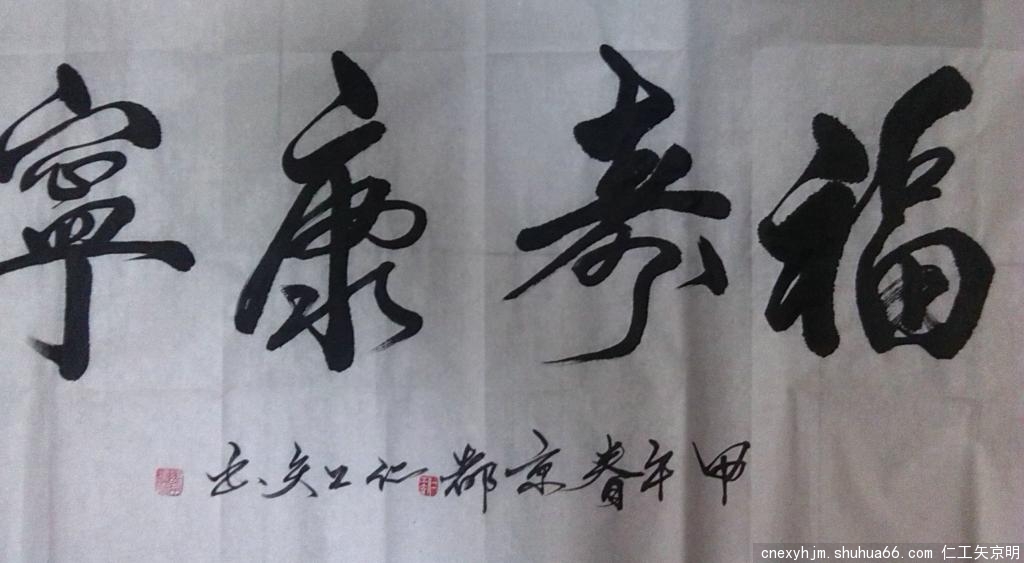 福寿康寧
甲午春京都仁工矢书
cnexyhjm.shuhua66.com 仁工矢京明